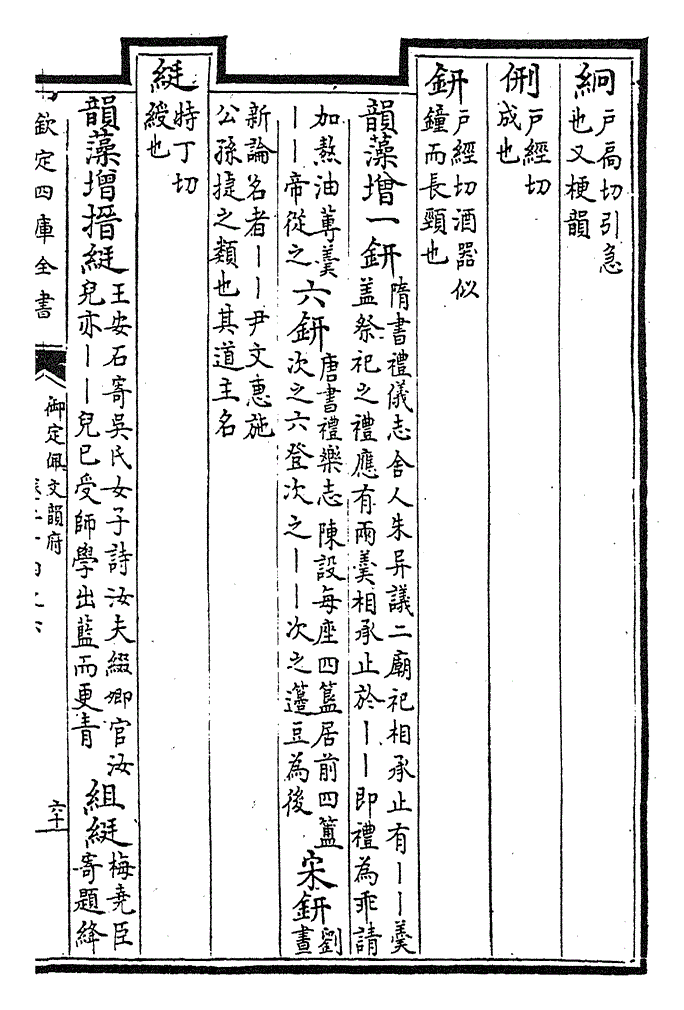 絅 戶扃切引急
也又梗韻
侀 戶經切
成也
鈃 戶經切酒器似
鐘而長頸也
韻藻增一鈃 隋書禮儀志舍人朱异議二廟祀相承止有丨丨羹
盖祭祀之禮應有兩羹相承止於丨丨即禮為乖請
加熬油蓴羹
丨丨帝從之
六鈃 唐書禮樂志陳設每座四簋居前四簠
次之六登次之丨丨次之籩豆為後
宋鈃 劉
晝
新論名者丨丨尹文惠施
公孫捷之類也其道主名
綎 特丁切
綬也
韻藻增搢綎 王安石寄吳氏女子詩汝夫綴卿官汝
兒亦丨丨兒已受師學出藍而更青
組綎 梅堯臣
寄題絳
欽定四庫全書
御定佩文韻府
六十